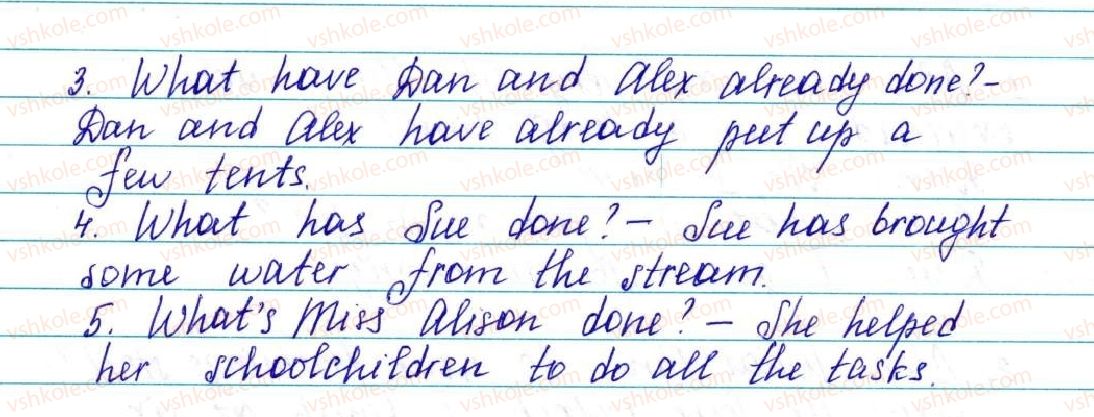 3. What have Dan and Alex already done? -
Dan and Alex have already put up a
few tents.
4. What has Sue done? - Sue has brought
some water from the stream.
5. What's Miss Alison done? - She helped
her schoolchildren to do all the tasks.